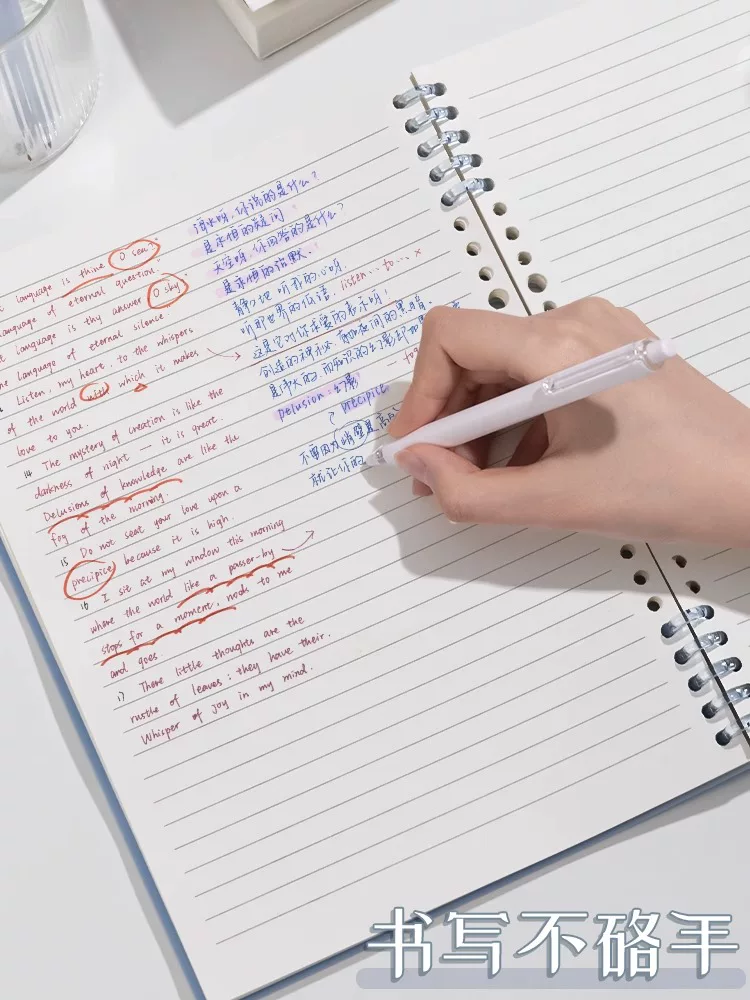 language is thine, O sea?"
language of eternal question."
language is thy answer O sky"
language of eternal silence.
Listen, my heart, to the whispers
of the world with which it makes
love to you.
14 The mystery of creation is like the
darkness of night — it is great.
Delusions of knowledge are like the
fog of the morning.
15 Do not seat your love upon a
precipice because it is high.
16 I sit at my window this morning
where the world like a passer-by
stops for a moment, nods to me
and goes
17 There little thoughts are the
rustle of leaves; they have their.
Whisper of joy in my mind.
海水呀,你说的是什么?
是永恒的疑问
天空呀,你回答的是什么?
是永恒的沉默.
静静地听,我的心呀,
listen...to...×
听那世界的低语,
这是它对你求爱的表示呀!
创造的神秘,有如夜间的黑暗,
是伟大的,而知识的幻影
delusion:幻影
precipice
不要因为峭壁是高的
就让你的
书写不硌手